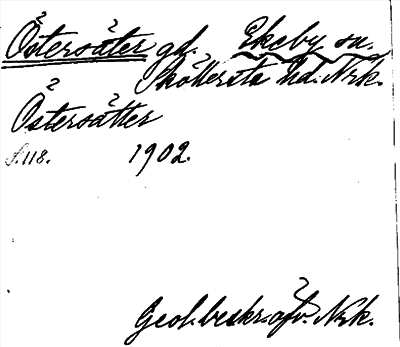 Östersäter gd. Ekeby sn.
Sköllersta hd. Nrk.
Östersätter
s. 118. 1902.
Geol. beskr. öfv. Nrk.